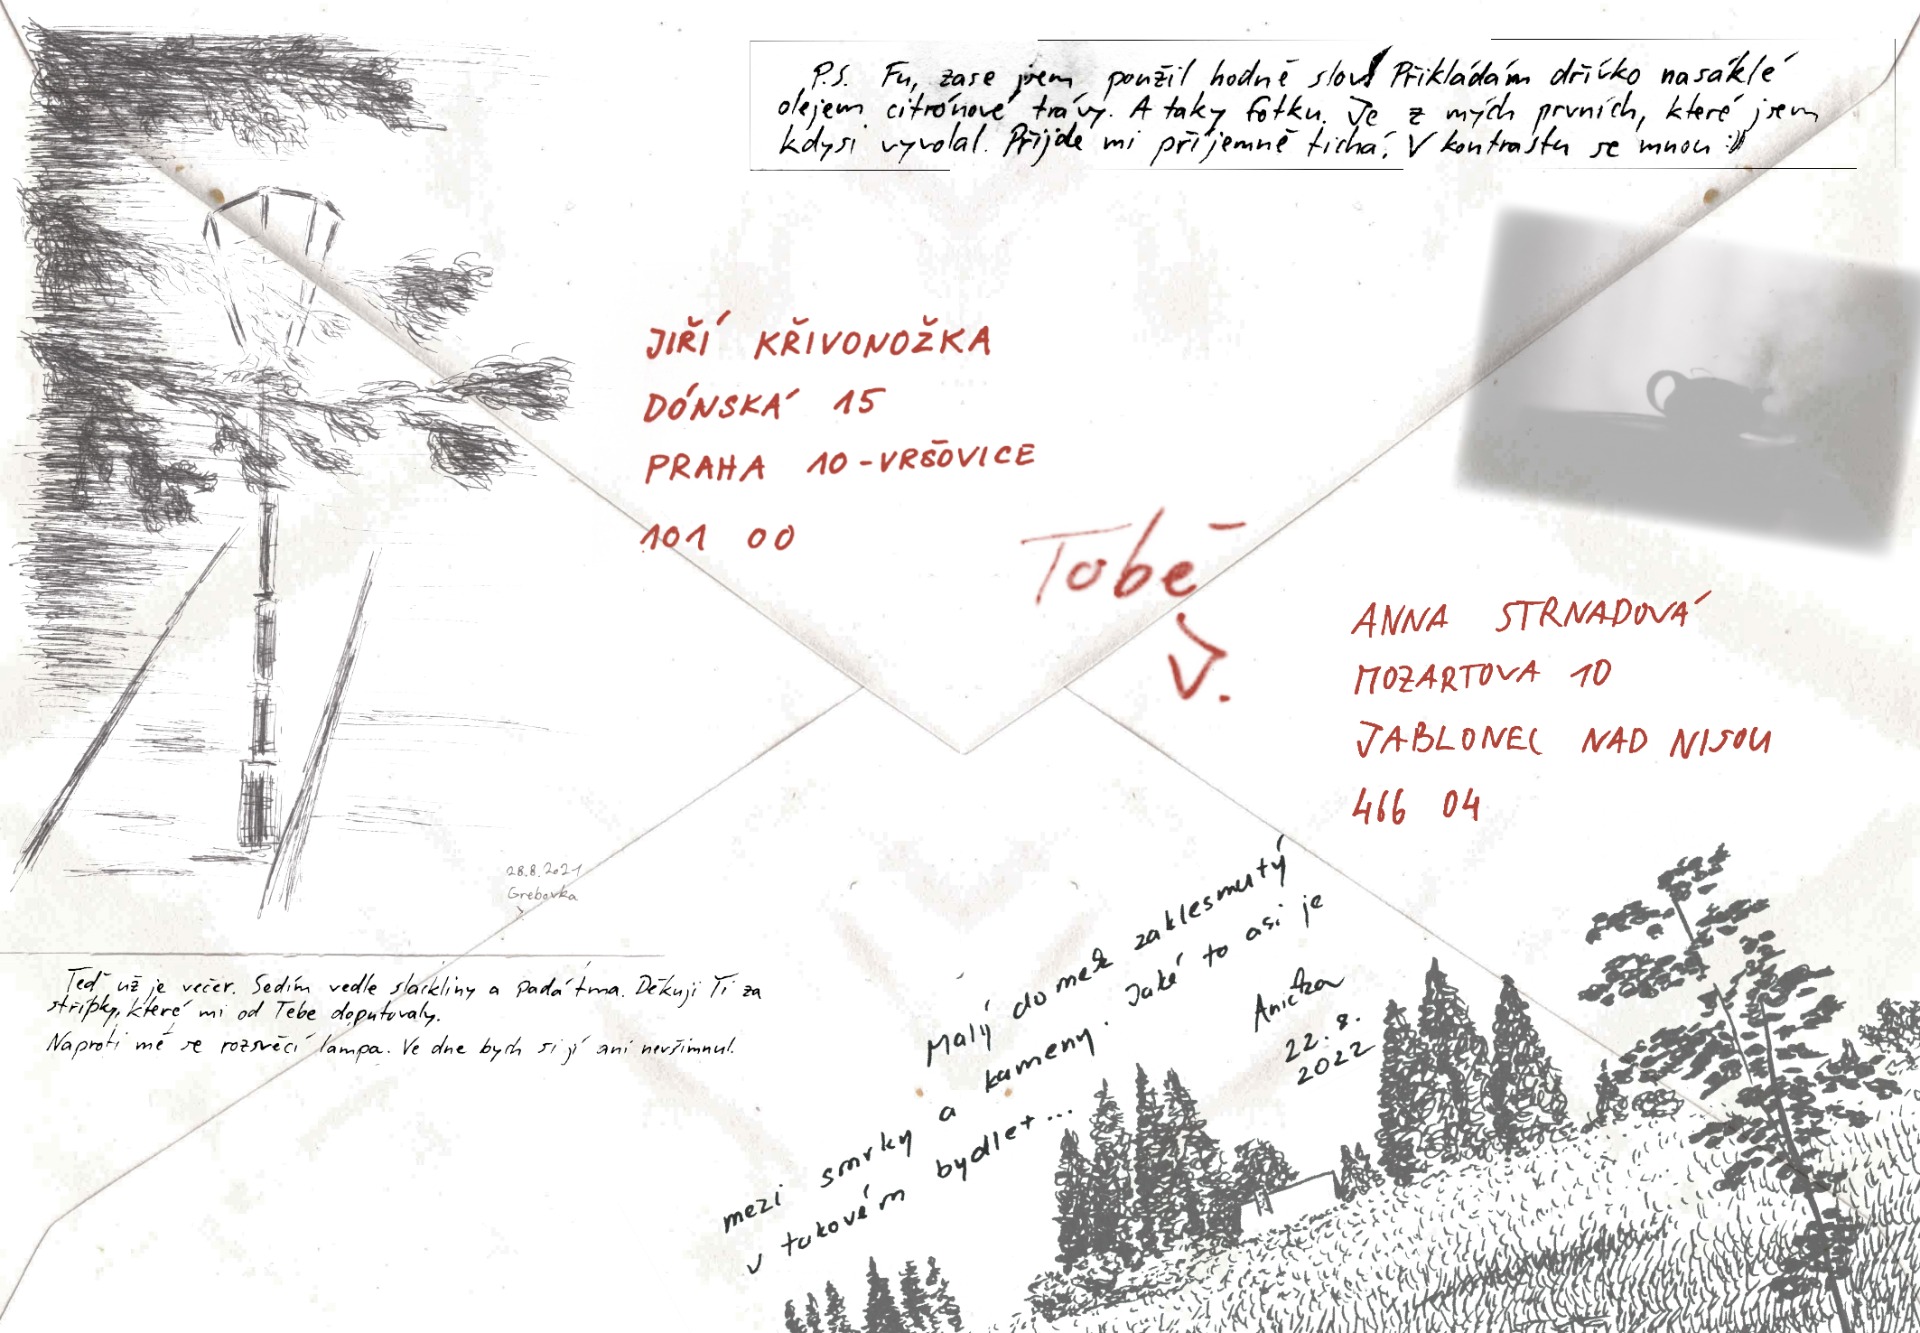 P.S. Fu, zase jsem použil hodně slov! Přikládám dřívko nasáklé
olejem citrónové trávy. A taky fotku. Je z mých prvních, které jsem
kdysi vyvolal. Přijde mi příjemně tichá. V kontrastu se mnou :))
JIŘÍ KŘIVONOŽKA
DÓNSKÁ 15
PRAHA 10-VRŠOVICE
101 00
Tobě
J.
ANNA STRNADOVÁ
MOZARTOVA 10
JABLONEC NAD NISOU
466 04
28.8.2021
Grebovka
Teď už je večer. Sedím vedle slackliny a padá tma. Děkuji Ti za
střípky, které mi od Tebe doputovaly.
Naproti mě se rozsvěcí lampa. Ve dne bych si jí ani nevšimnul.
Malý domek zaklesnutý
mezi smrky a kameny. Jaké to asi je
v takovém bydlet...
Anička
22.8.
2022